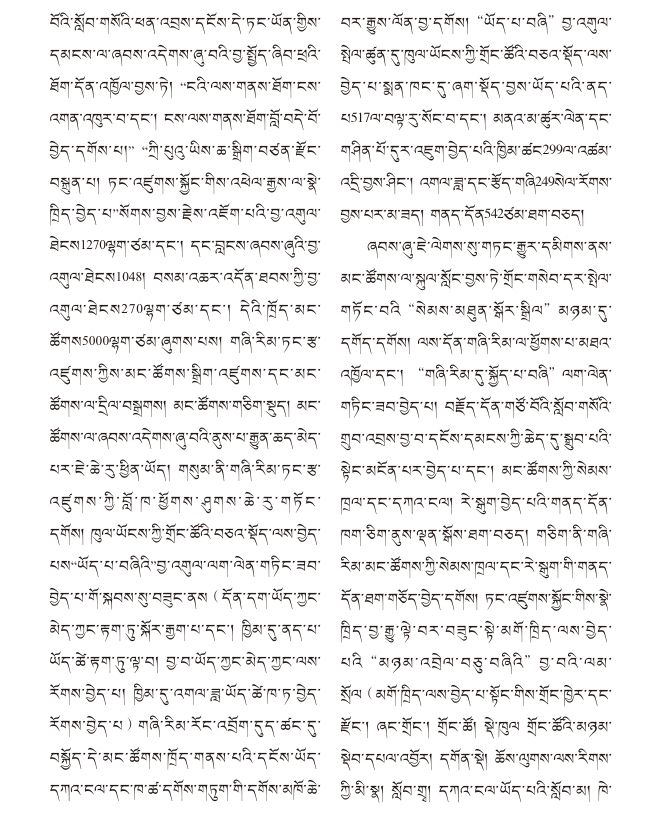 བོའི་སློབ་གསོའི་ཕན་འབྲས་དངོས་དེ་ཏང་ཡོན་གྱིས་
དམངས་ལ་ཞབས་འདེགས་ཞུ་བའི་བྱ་སྤྱོད་ཞིབ་ཕྲའི་
ཐོག་དོན་འཁྱོལ་བྱས་ཏེ། “ངའི་ལས་གནས་ཐོག་ངས་
འགན་འཁུར་བ་དང་། ངས་ལས་གནས་ཐོག་བློ་བདེ་བོ་
བྱེད་དགོས་པ།” “ཀྲི་པུའུ་ཡིས་ཆ་སྒྲིག་བཙན་རྫོང་
བསྐྲུན་པ། ཏང་འཛུགས་སྐྱོང་གིས་འཕེལ་རྒྱས་ལ་སྣེ་
ཁྲིད་བྱེད་པ”སོགས་བྱས་རྗེས་འཇོག་པའི་བྱ་འགུལ་
ཐེངས1270ལྷག་ཙམ་དང་། དང་བླངས་ཞབས་ཞུའི་བྱ་
འགུལ་ཐེངས1048། བསམ་འཆར་འདོན་ཐབས་ཀྱི་བྱ་
འགུལ་ཐེངས270ལྷག་ཙམ་དང་། དེའི་ཁྲོད་མང་
ཚོགས5000ལྷག་ཙམ་ཞུགས་པས། གཞི་རིམ་ཏང་རྩ་
འཛུགས་ཀྱིས་མང་ཚོགས་སྒྲིག་འཛུགས་དང་མང་
ཚོགས་ལ་དྲིལ་བསྒྲགས། མང་ཚོགས་གཅིག་སྡུད། མང་
ཚོགས་ལ་ཞབས་འདེགས་ཞུ་བའི་ནུས་པ་རྒྱུན་ཆད་མེད་
པར་ཇེ་ཆེ་རུ་ཕྱིན་ཡོད། གསུམ་ནི་གཞི་རིམ་ཏང་རྩ་
འཛུགས་ཀྱི་བློ་ཁ་ཕྱོགས་ཤུགས་ཆེ་རུ་གཏོང་
དགོས། ཁུལ་ཡོངས་ཀྱི་གྲོང་ཚོའི་བཅའ་སྡོད་ལས་བྱེད་
པས“ཡོད་པ་བཞིའི”བྱ་འགུལ་ལག་ལེན་གཏིང་ཟབ་
བྱེད་པ་གོ་སྐབས་སུ་བཟུང་ནས（དོན་དག་ཡོད་ཀྱང་
མེད་ཀྱང་རྟག་ཏུ་སྐོར་རྒྱག་པ་དང་། ཁྱིམ་དུ་ནད་པ་
ཡོད་ཚེ་རྟག་ཏུ་ལྟ་བ། བྱ་བ་ཡོད་ཀྱང་མེད་ཀྱང་ལས་
རོགས་བྱེད་པ། ཁྱིམ་དུ་འགལ་ཟླ་ཡོད་ཚེ་ཁ་ཏ་བྱེད་
རོགས་བྱེད་པ）གཞི་རིམ་རོང་འབྲོག་དུད་ཚང་དུ་
བསྐྱོད་དེ་མང་ཚོགས་ཁྲོད་གནས་པའི་དངོས་ཡོད་
དཀའ་ངལ་དང་ཁ་ཚ་དགོས་གཏུག་གི་དགོས་མཁོ་ཆེ་
བར་རྒྱུས་ལོན་བྱ་དགོས། “ཡོད་པ་བཞི”བྱ་འགུལ་
སྤེལ་ཚུན་དུ་ཁུལ་ཡོངས་ཀྱི་གྲོང་ཚོའི་བཅའ་སྡོད་ལས་
བྱེད་པ་སྨན་ཁང་དུ་ཞག་སྡོད་བྱས་ཡོད་པའི་ནད་
པ517ལ་བལྟ་རུ་སོང་བ་དང་། མནའ་མ་ཚུར་ལེན་དང་
གཤིན་པོ་དུར་འཇུག་བྱེད་པའི་ཁྱིམ་ཚང299ལ་འཚམ་
འདྲི་བྱས་ཤིང་། འགལ་ཟླ་དང་རྩོད་གཞི249སེལ་རོགས་
བྱས་པར་མ་ཟད། གནད་དོན542ཙམ་ཐག་བཅད།
ཞབས་ཞུ་ཇེ་ལེགས་སུ་གཏང་རྒྱུར་དམིགས་ནས་
མང་ཚོགས་ལ་སྐུལ་སློང་བྱས་ཏེ་གྲོང་གསེབ་དར་སྤེལ་
གཏོང་བའི “སེམས་མཐུན་སྒོར་སྒྲིལ” མཉམ་དུ་
དགོད་དགོས། ལས་དོན་གཞི་རིམ་ལ་ཕྱོགས་པ་མཐའ་
འཁྱོལ་དང་། “གཞི་རིམ་དུ་སྐྱོད་པ་བཞི” ལག་ལེན་
གཏིང་ཟབ་བྱེད་པ། བརྗོད་དོན་གཙོ་བོའི་སློབ་གསོའི་
གྲུབ་འབྲས་བྱ་བ་དངོས་དམངས་ཀྱི་ཆེད་དུ་སྒྲུབ་པའི་
སྟེང་མངོན་པར་བྱེད་པ་དང་། མང་ཚོགས་ཀྱི་སེམས་
ཁྲལ་དང་དཀའ་ངལ། རེ་སྒུག་བྱེད་པའི་གནད་དོན་
ཁག་ཅིག་ནུས་ལྡན་སྒོས་ཐག་བཅད། གཅིག་ནི་གཞི་
རིམ་མང་ཚོགས་ཀྱི་སེམས་ཁྲལ་དང་རེ་སྒུག་གི་གནད་
དོན་ཐག་གཅོད་བྱེད་དགོས། ཏང་འཛུགས་སྐྱོང་གིས་སྣེ་
ཁྲིད་བྱ་རྒྱུ་ལྟེ་བར་བཟུང་སྟེ་མགོ་ཁྲིད་ལས་བྱེད་
པའི “མཉམ་འབྲེལ་བཅུ་བཞིའི” བྱ་བའི་ལམ་
སྲོལ（མགོ་ཁྲིད་ལས་བྱེད་པ་སྟོང་གིས་གྲོང་ཁྱེར་དང་
རྫོང་། ཞང་གྲོང་། གྲོང་ཚོ། སྡེ་ཁུལ གྲོང་ཚོའི་མཉམ་
སྡེབ་དཔལ་འབྱོར། དགོན་སྡེ། ཆོས་ལུགས་ལས་རིགས་
ཀྱི་མི་སྣ། སློབ་གྲྭ། དཀའ་ངལ་ཡོད་པའི་སློབ་མ། ཁེ་